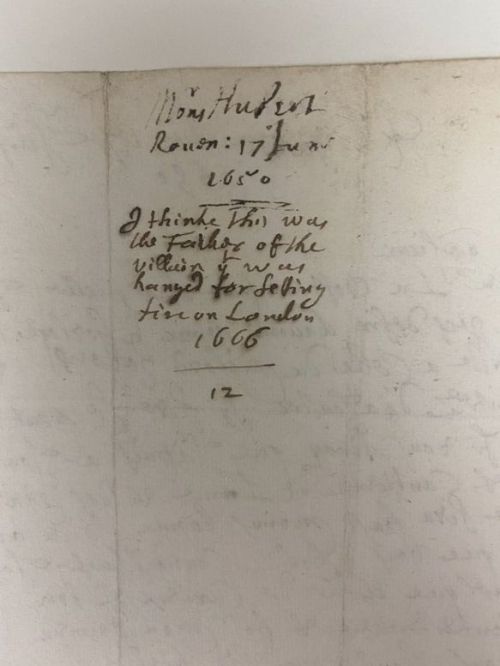 Mons Hubert
Rouen: 17 Jun
1650
I thinke this was
the Father of the
villain yt was
hanged for setting
fire on London
1666
12